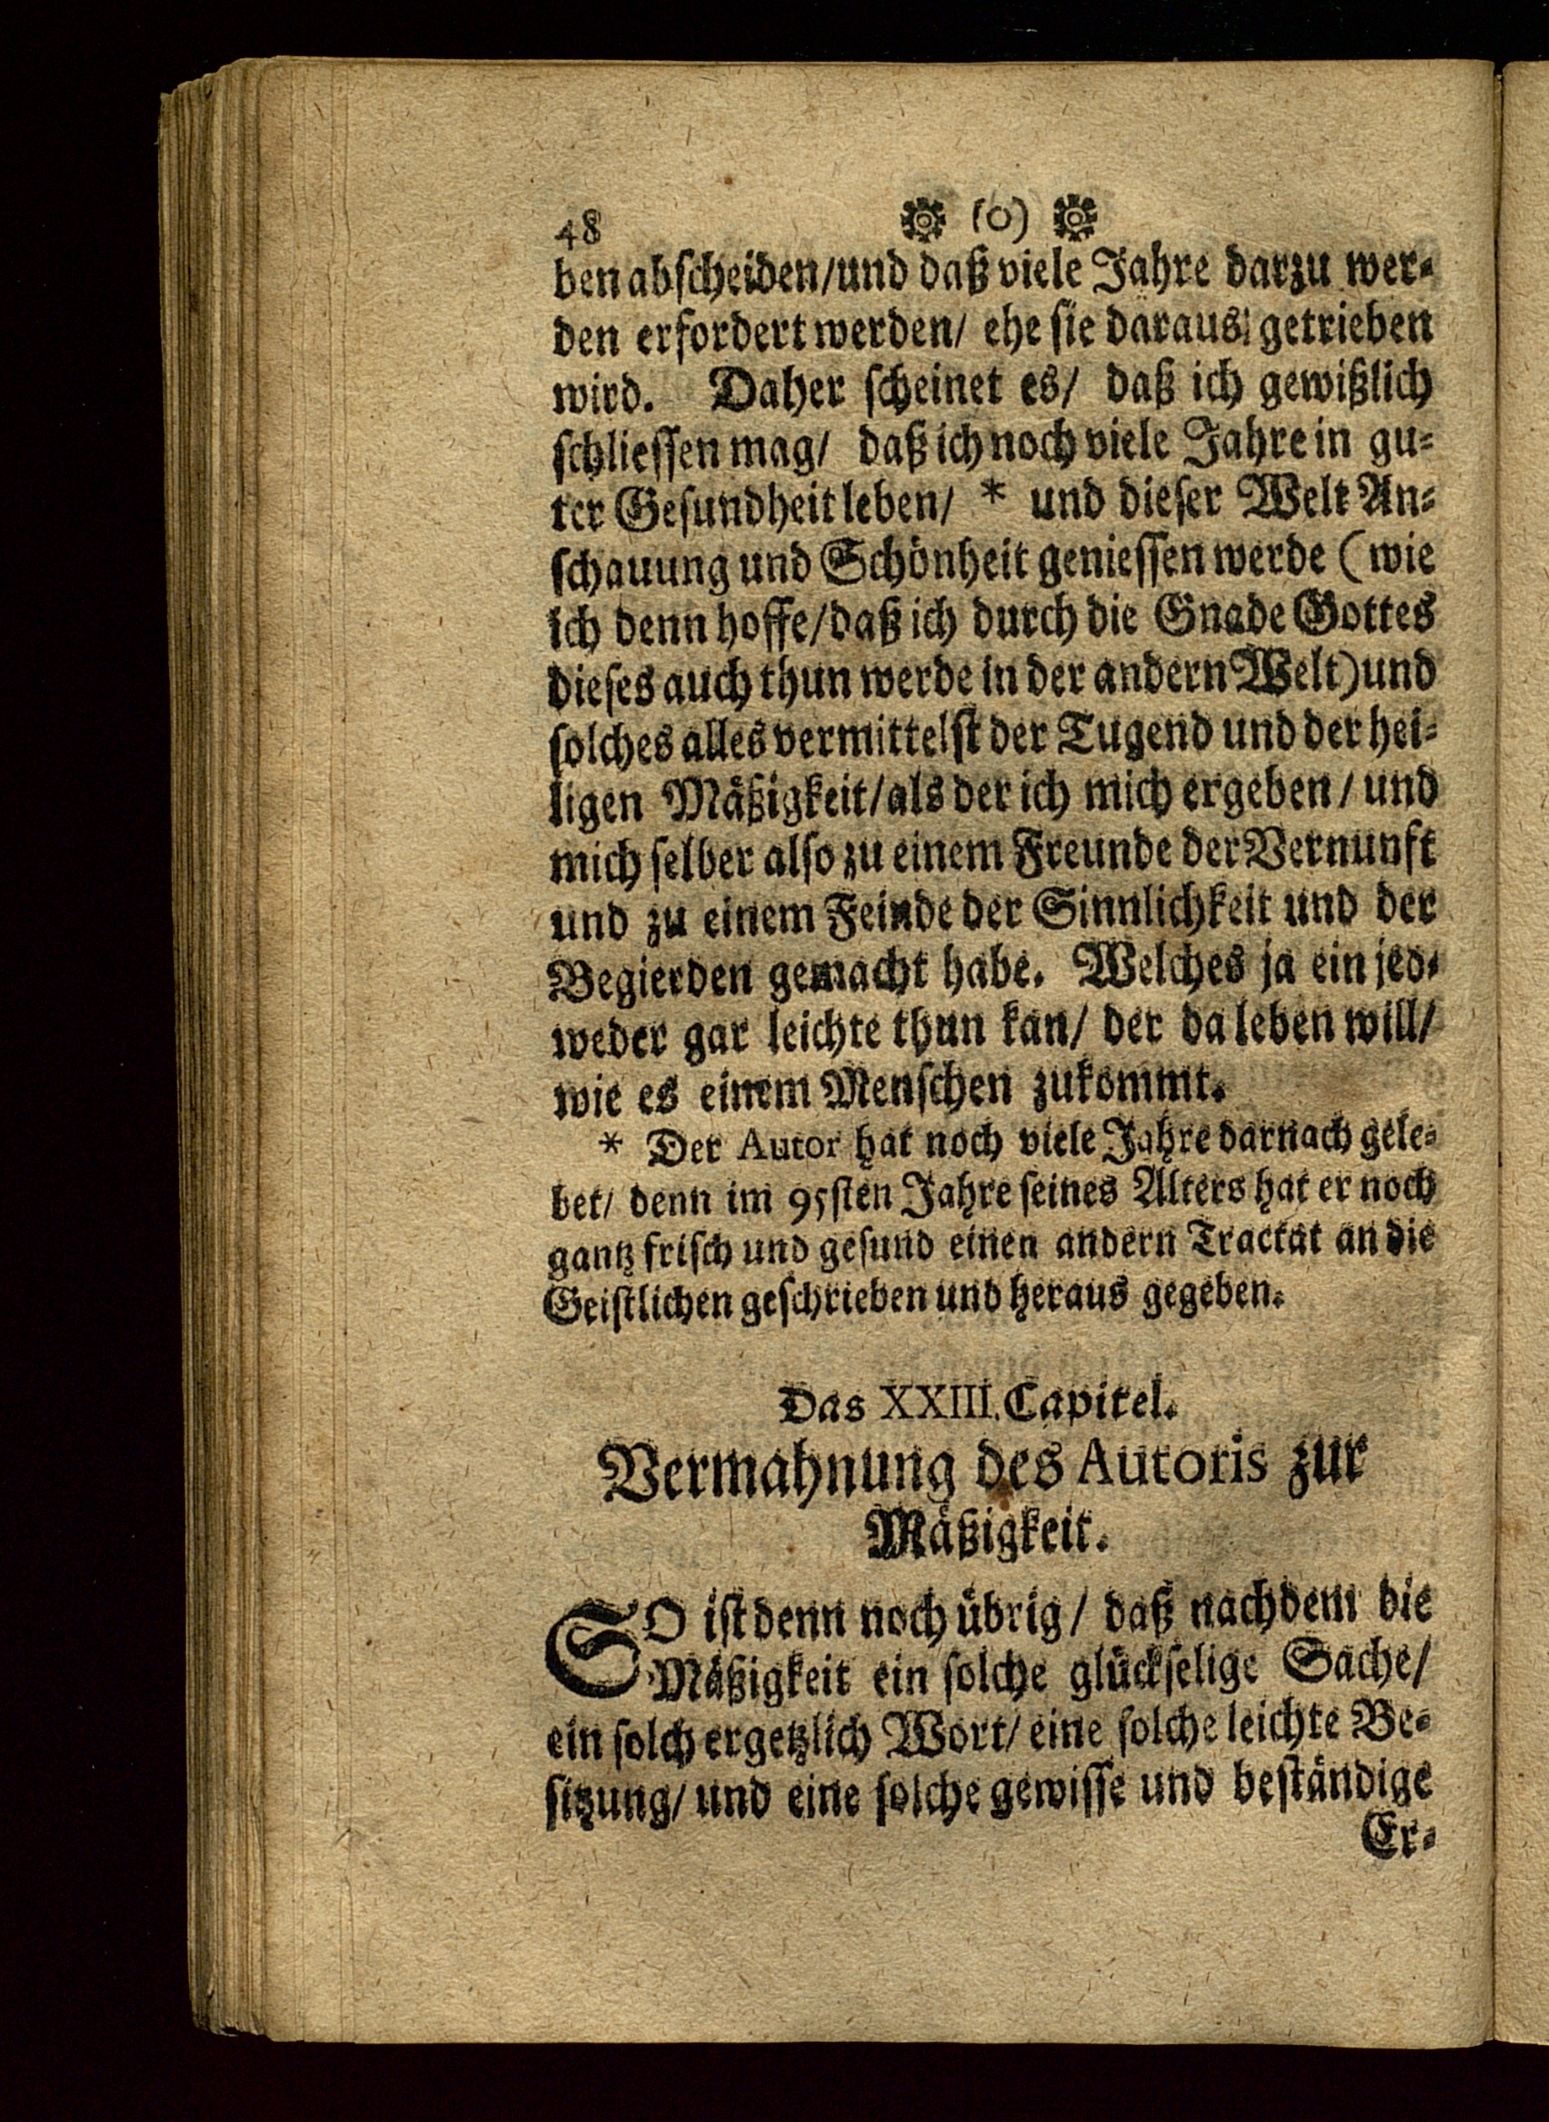 48 (o)
ben abscheiden/und daß viele Jahre darzu wer-
den erfordert werden/ ehe sie daraus getrieben
wird. Daher scheinet es/ daß ich gewißlich
schliessen mag/ daß ich noch viele Jahre in gu-
ter Gesundheit leben/ * und dieser Welt An-
schauung und Schönheit geniessen werde (wie
ich denn hoffe/daß ich durch die Gnade Gottes
dieses auch thun werde in der andern Welt) und
solches alles vermittelst der Tugend und der hei-
ligen Mäßigkeit/als der ich mich ergeben/ und
mich selber also zu einem Freunde der Vernunft
und zu einem Feinde der Sinnlichkeit und der
Begierden gemacht habe. Welches ja ein jed-
weder gar leichte thun kan/ der da leben will/
wie es einem Menschen zukommt.
* Der Autor hat noch viele Jahre darnach gele-
bet/ denn im 95sten Jahre seines Alters hat er noch
gantz frisch und gesund einen andern Tractat an die
Geistlichen geschrieben und heraus gegeben.
Das XXIII. Capitel.
Vermahnung des Autoris zur
Mäßigkeit.
SO ist denn noch übrig/ daß nachdem die
Mäßigkeit ein solche glückselige Sache/
ein solch ergetzlich Wort/ eine solche leichte Be-
sitzung/ und eine solche gewisse und beständige
Er-